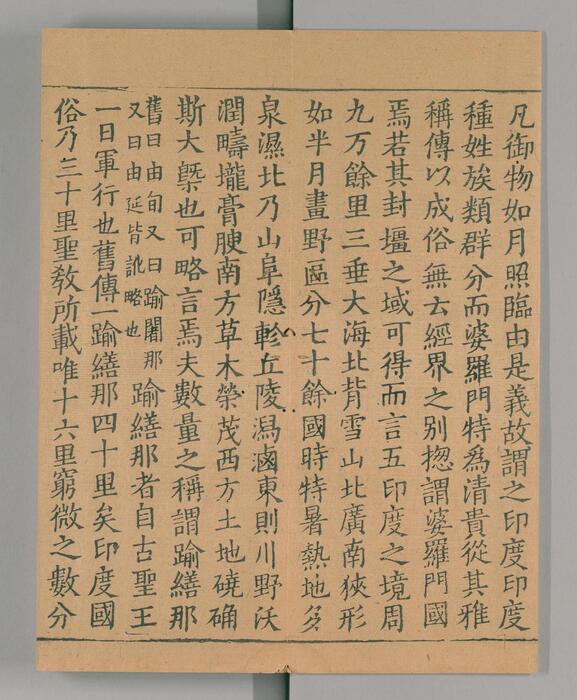 凡御物如月照臨由是義故謂之印度印度
種姓族類群分而婆羅門特爲清貴從其雅
稱傳以成俗無云經界之別揔謂婆羅門國
焉若其封壃之域可得而言五印度之境周
九万餘里三垂大海北背雪山北廣南狹形
如半月畫野區分七十餘國時特暑熱地多
泉濕北乃山阜隱軫丘陵潟滷東則川野沃
潤疇壠膏腴南方草木榮茂西方土地磽确
斯大槩也可略言焉夫數量之稱謂踰繕那
舊曰由旬又曰踰闍那
又曰由延皆訛略也
踰繕那者自古聖王
一日軍行也舊傳一踰繕那四十里矣印度國
俗乃三十里聖教所載唯十六里窮微之數分